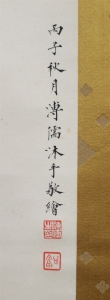 丙子秋月溥儒沐手敬繪